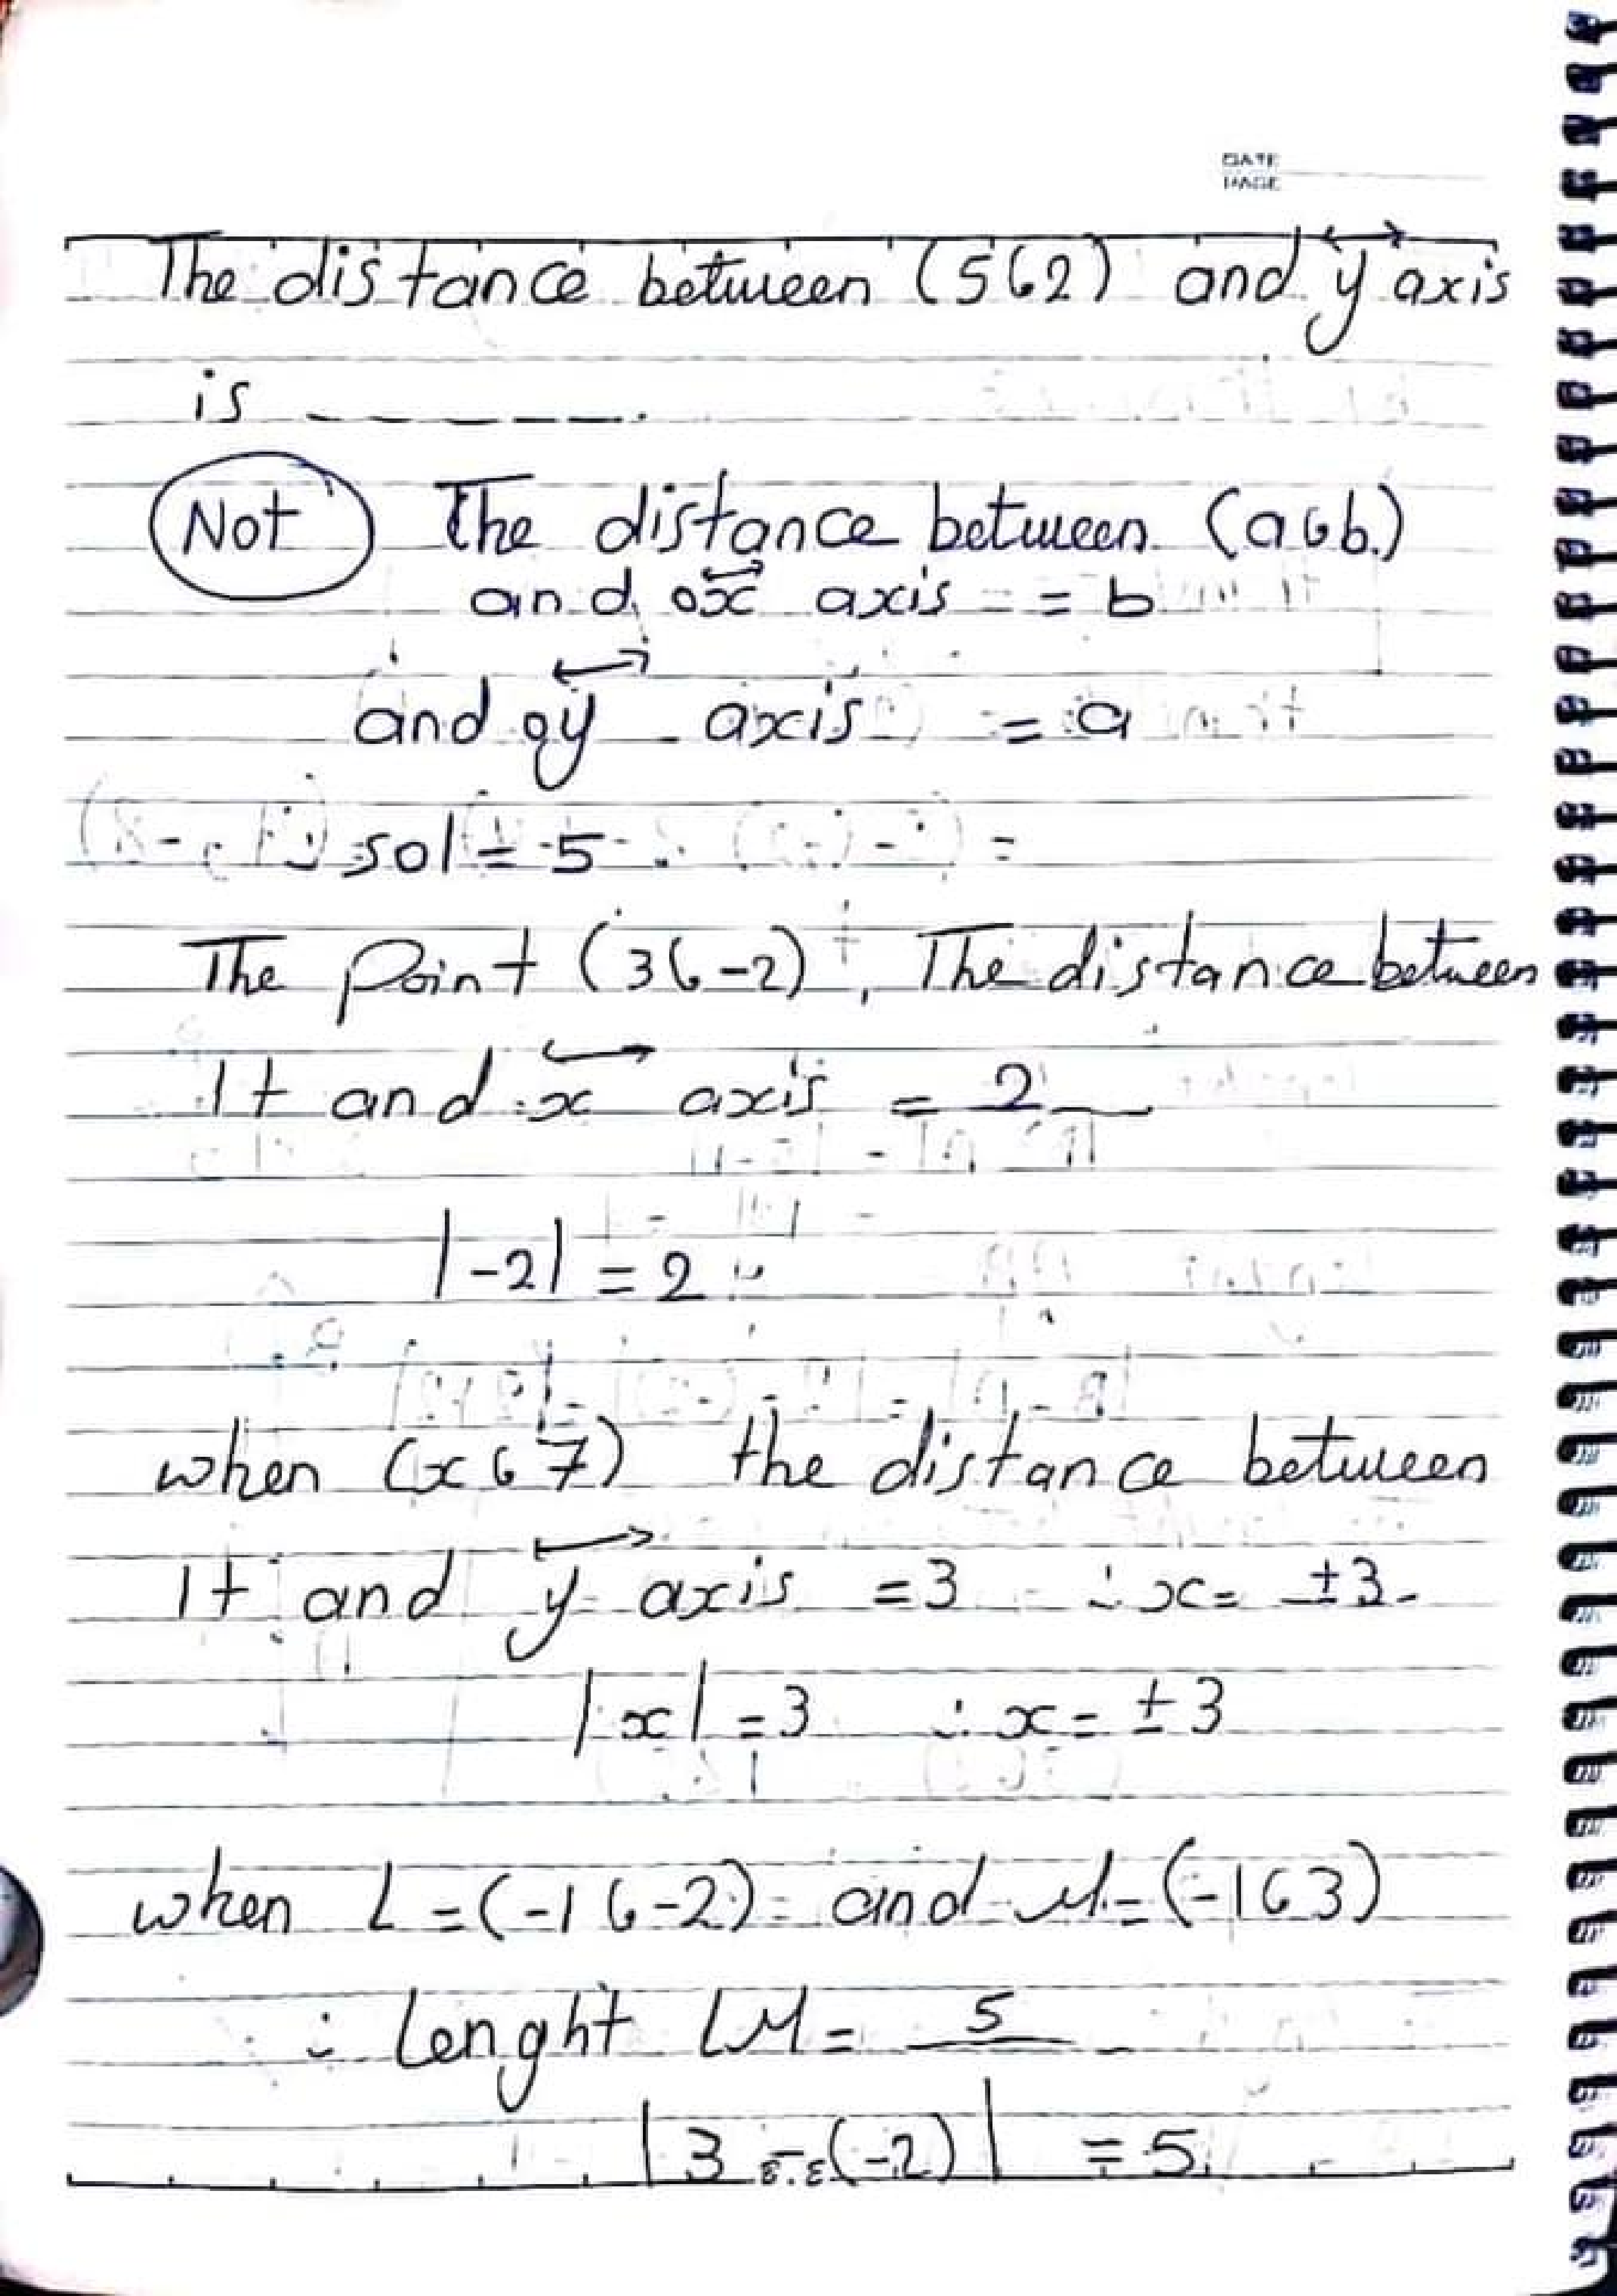 DATE
PAGE
The distance between (5 6 2) and y axis
is ------.
Not The distance between (a 6 b)
and ox axis = b
and oy axis = a
sol = 5
The point (3 6 -2), The distance between
It and x axis = 2
|-2| = 2
when (x 6 7) the distance between
It and y axis = 3 ∴ x = ±3
|x| = 3 ∴ x = ±3
when L = (-1 6 -2) and M = (-1 6 3)
∴ Lenght LM = 5
|3 - (-2)| = 5